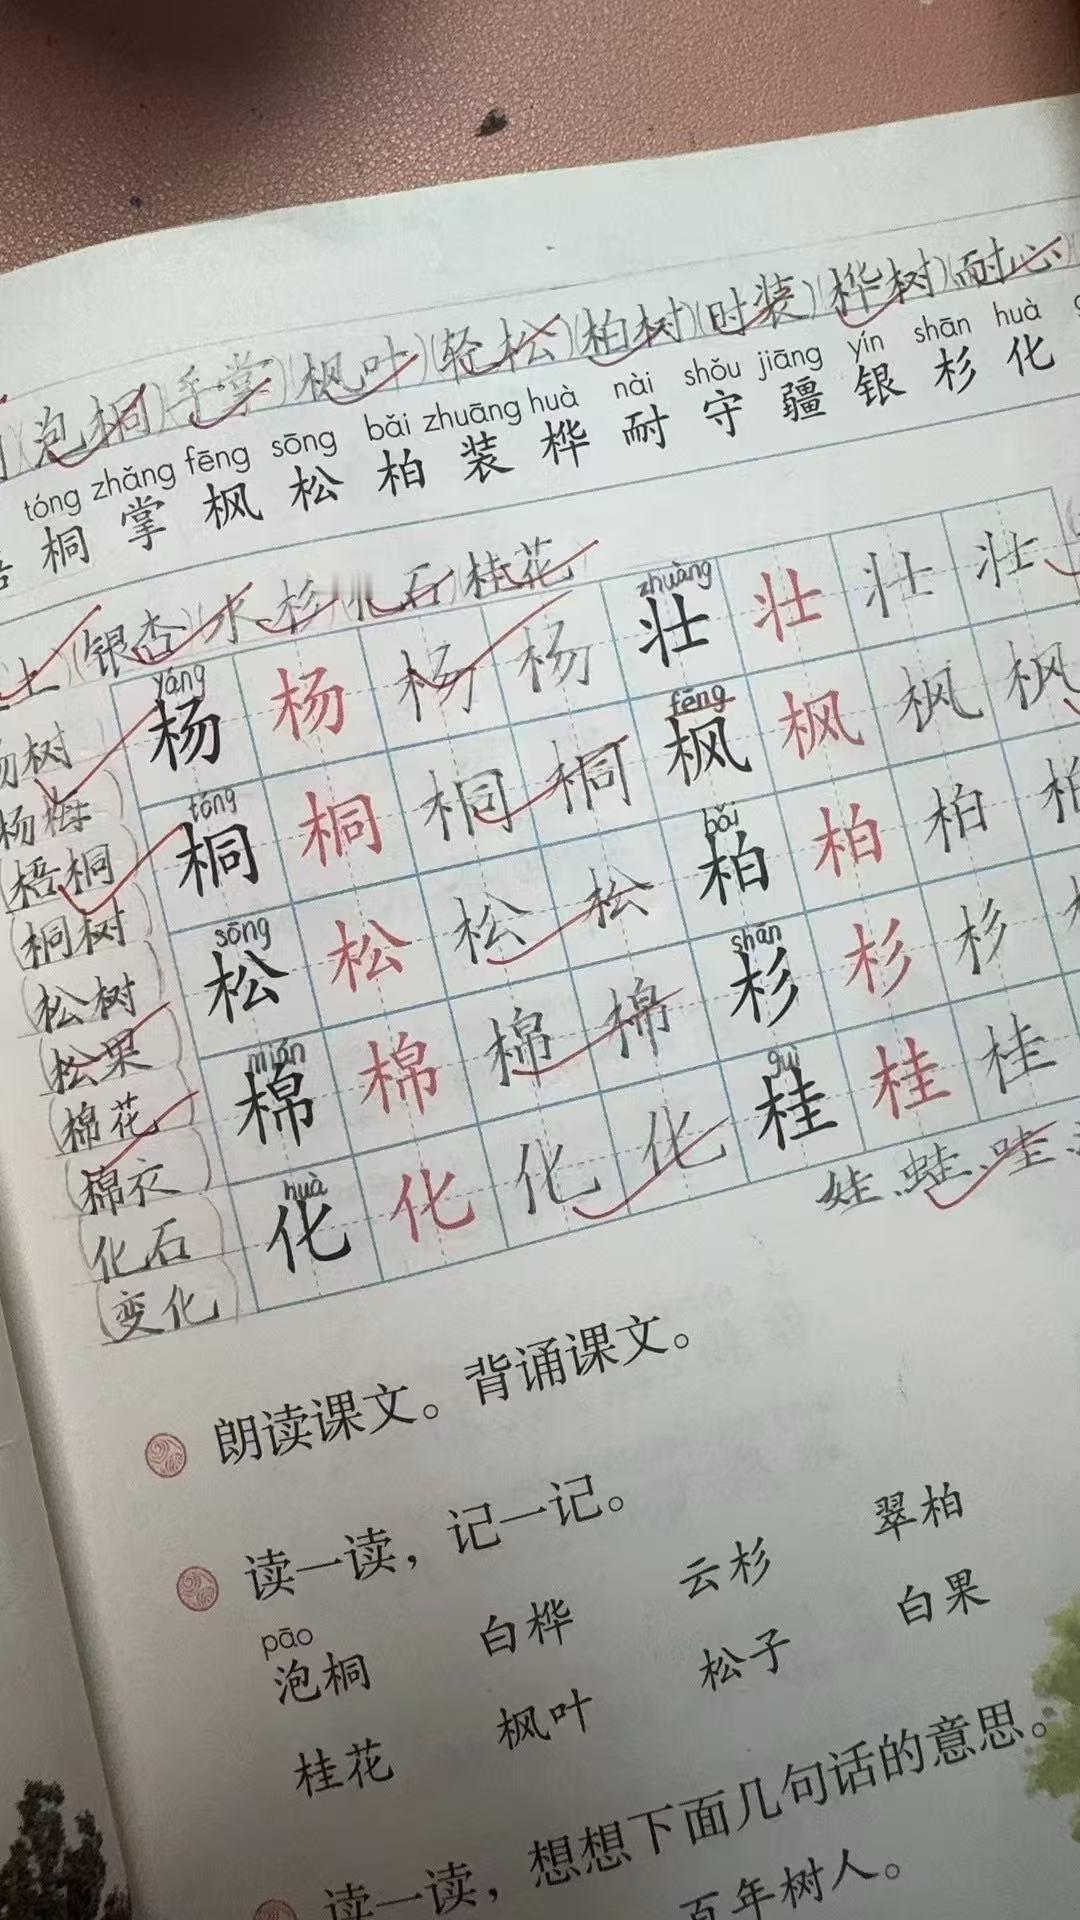 泡桐)(手掌)(枫叶)(轻松)(柏树)(时装)(桦树)(耐心)
tóng zhǎng fēng sōng bǎi zhuāng huà nài shǒu jiāng yín shān huà
桐 掌 枫 松 柏 装 桦 耐 守 疆 银 杉 化
土)(银杏)(水杉)(化石)(桂花)
yáng zhuàng
杨 杨 杨 杨 壮 壮 壮 壮
杨树
杨梅
tóng fēng
桐 桐 桐 桐 枫 枫 枫 枫
(梧桐)
(桐树)
sōng bǎi
松 松 松 松 柏 柏 柏 柏
(松树)
(松果)
mián shān
棉 棉 棉 棉 杉 杉 杉
(棉花)
(棉衣)
huà guì
化 化 化 化 桂 桂 桂
(化石)
(变化)
娃、蛙、哇、
朗读课文。背诵课文。
读一读，记一记。
pāo
泡桐 白桦 云杉 翠柏
桂花 枫叶 松子 白果
读一读，想想下面几句话的意思。
百年树人。